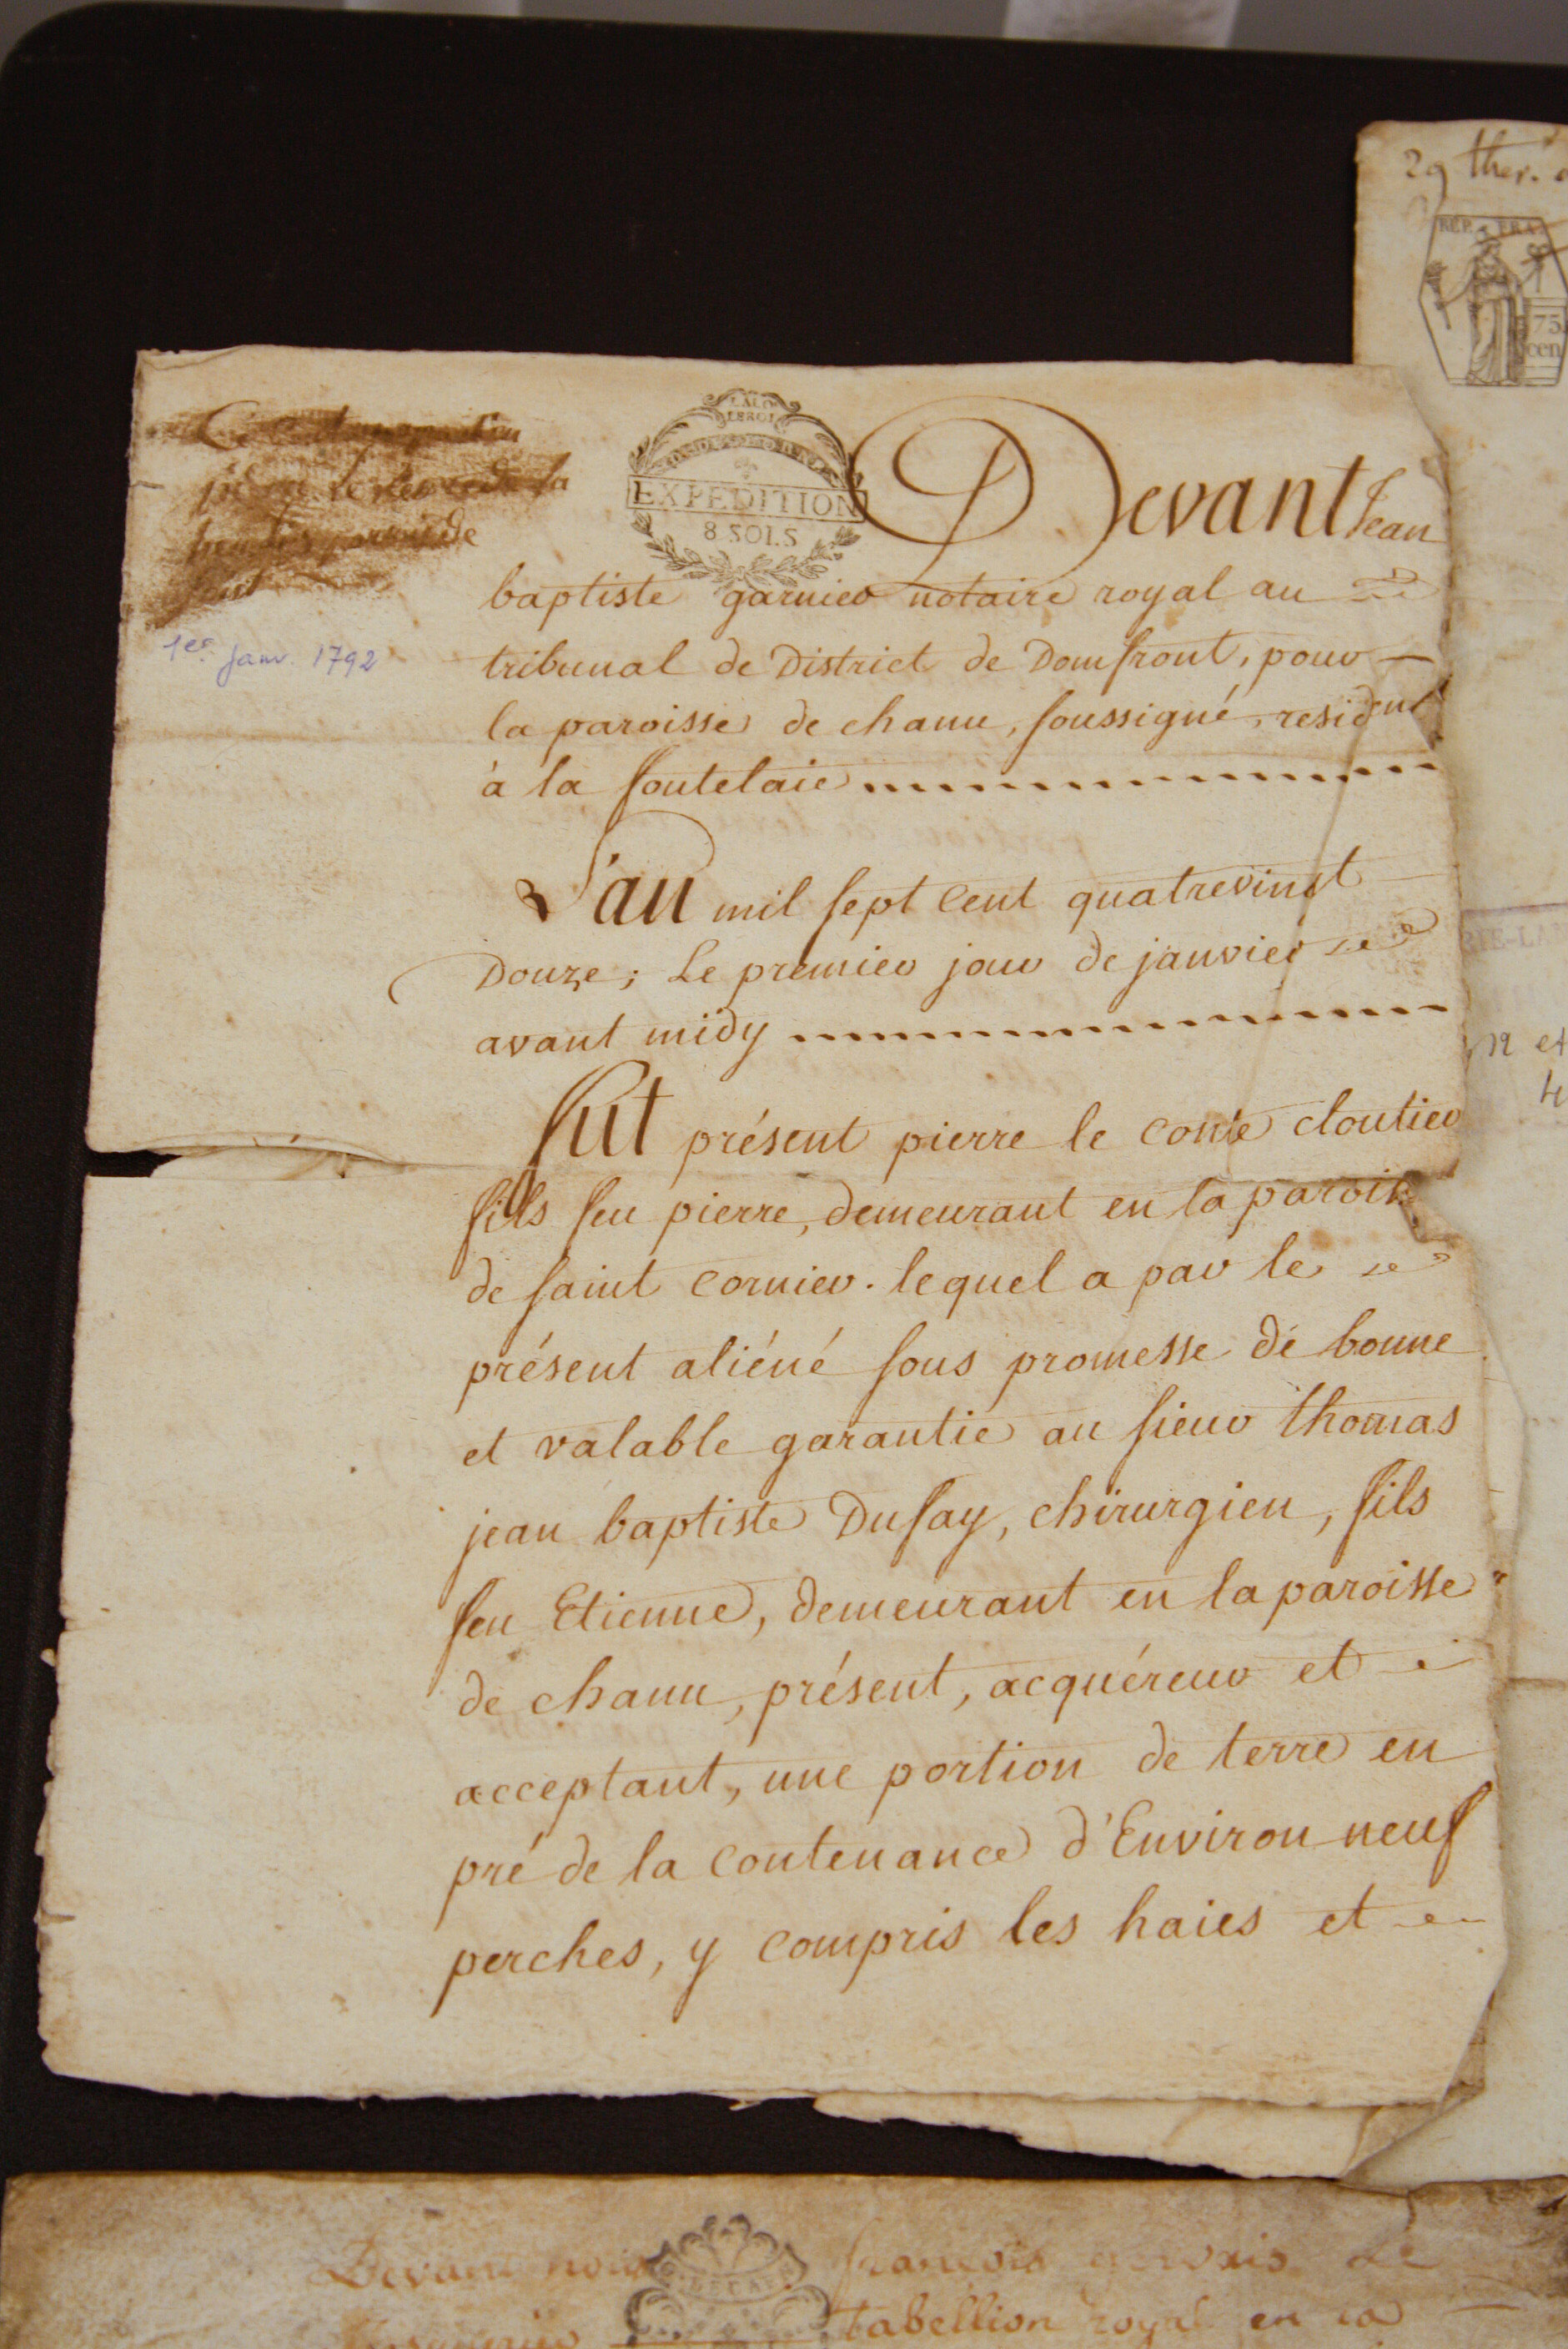 29 ther.
REP. FRA.
75
cen
LA LOI
LE ROI
EXPEDITION
8 SOLS
Devant Jean
baptiste garnier notaire royal au
tribunal de District de Domfront, pour
la paroisse de chanu, soussigné, resident
à la foutelaie
1er Janv. 1792
L'an mil sept cent quatrevingt
Douze; Le premier jour de janvier
avant midy
fut présent pierre le conte cloutier
fils feu pierre, demeurant en la paroisse
de saint cornier. lequel a par le
présent aliéné sous promesse de bonne
et valable garantie au sieur thomas
jean baptiste Dufay, chirurgien, fils
feu Etienne, demeurant en la paroisse
de chanu, présent, acquéreur et
acceptant, une portion de terre en
pré de la contenance d'Environ neuf
perches, y compris les haies et
Devant nous françois gervais Le
tabellion royal en la